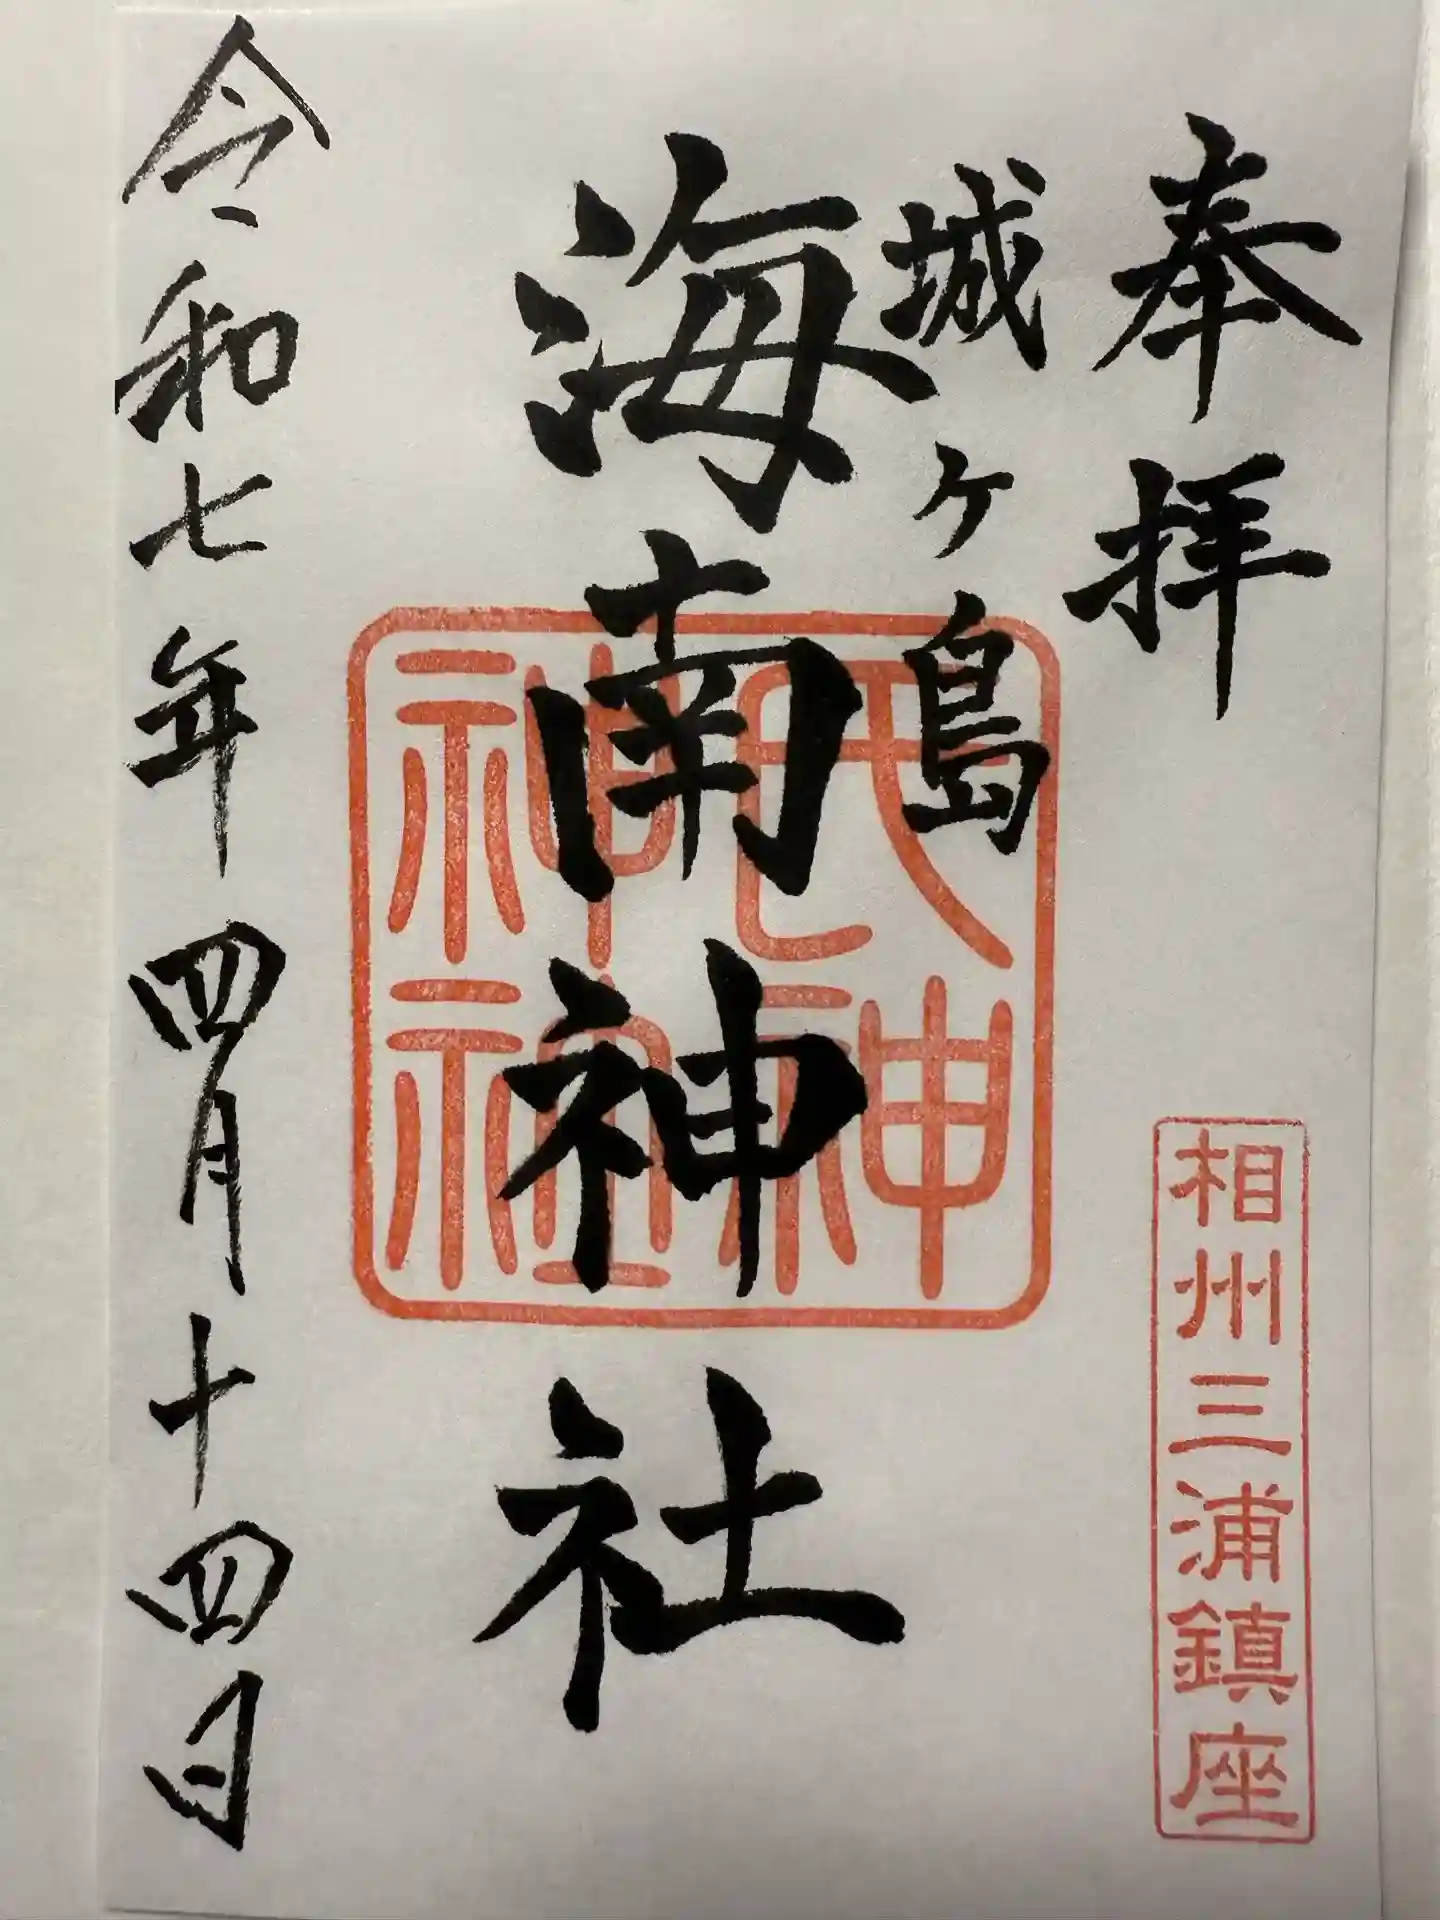 奉拝
相州三浦鎮座
城ヶ島
海南神社
令和七年四月十四日